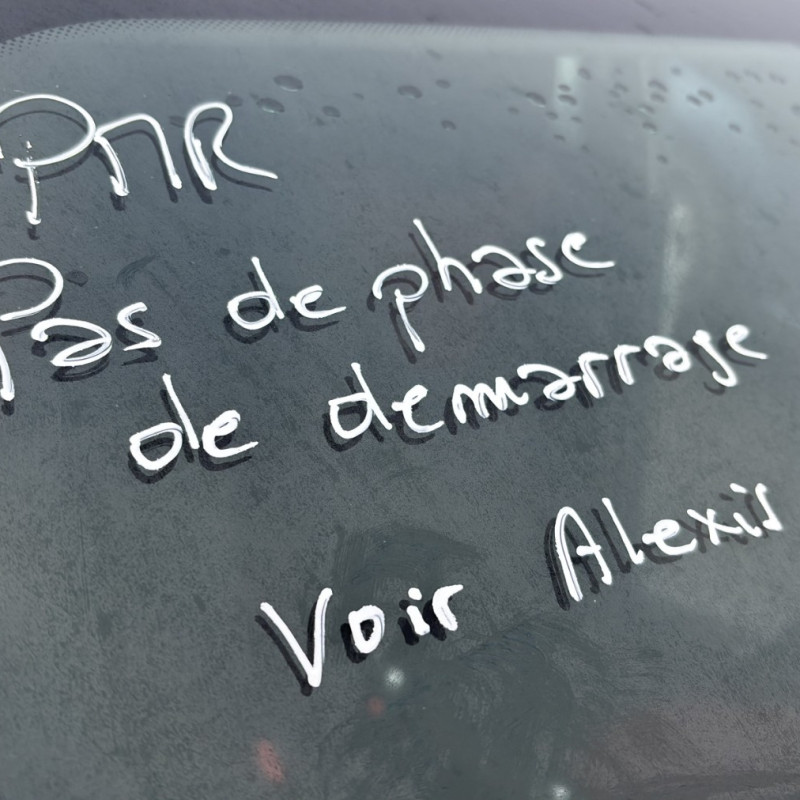 PMR
Pas de phase
de demarrage
Voir Alexis